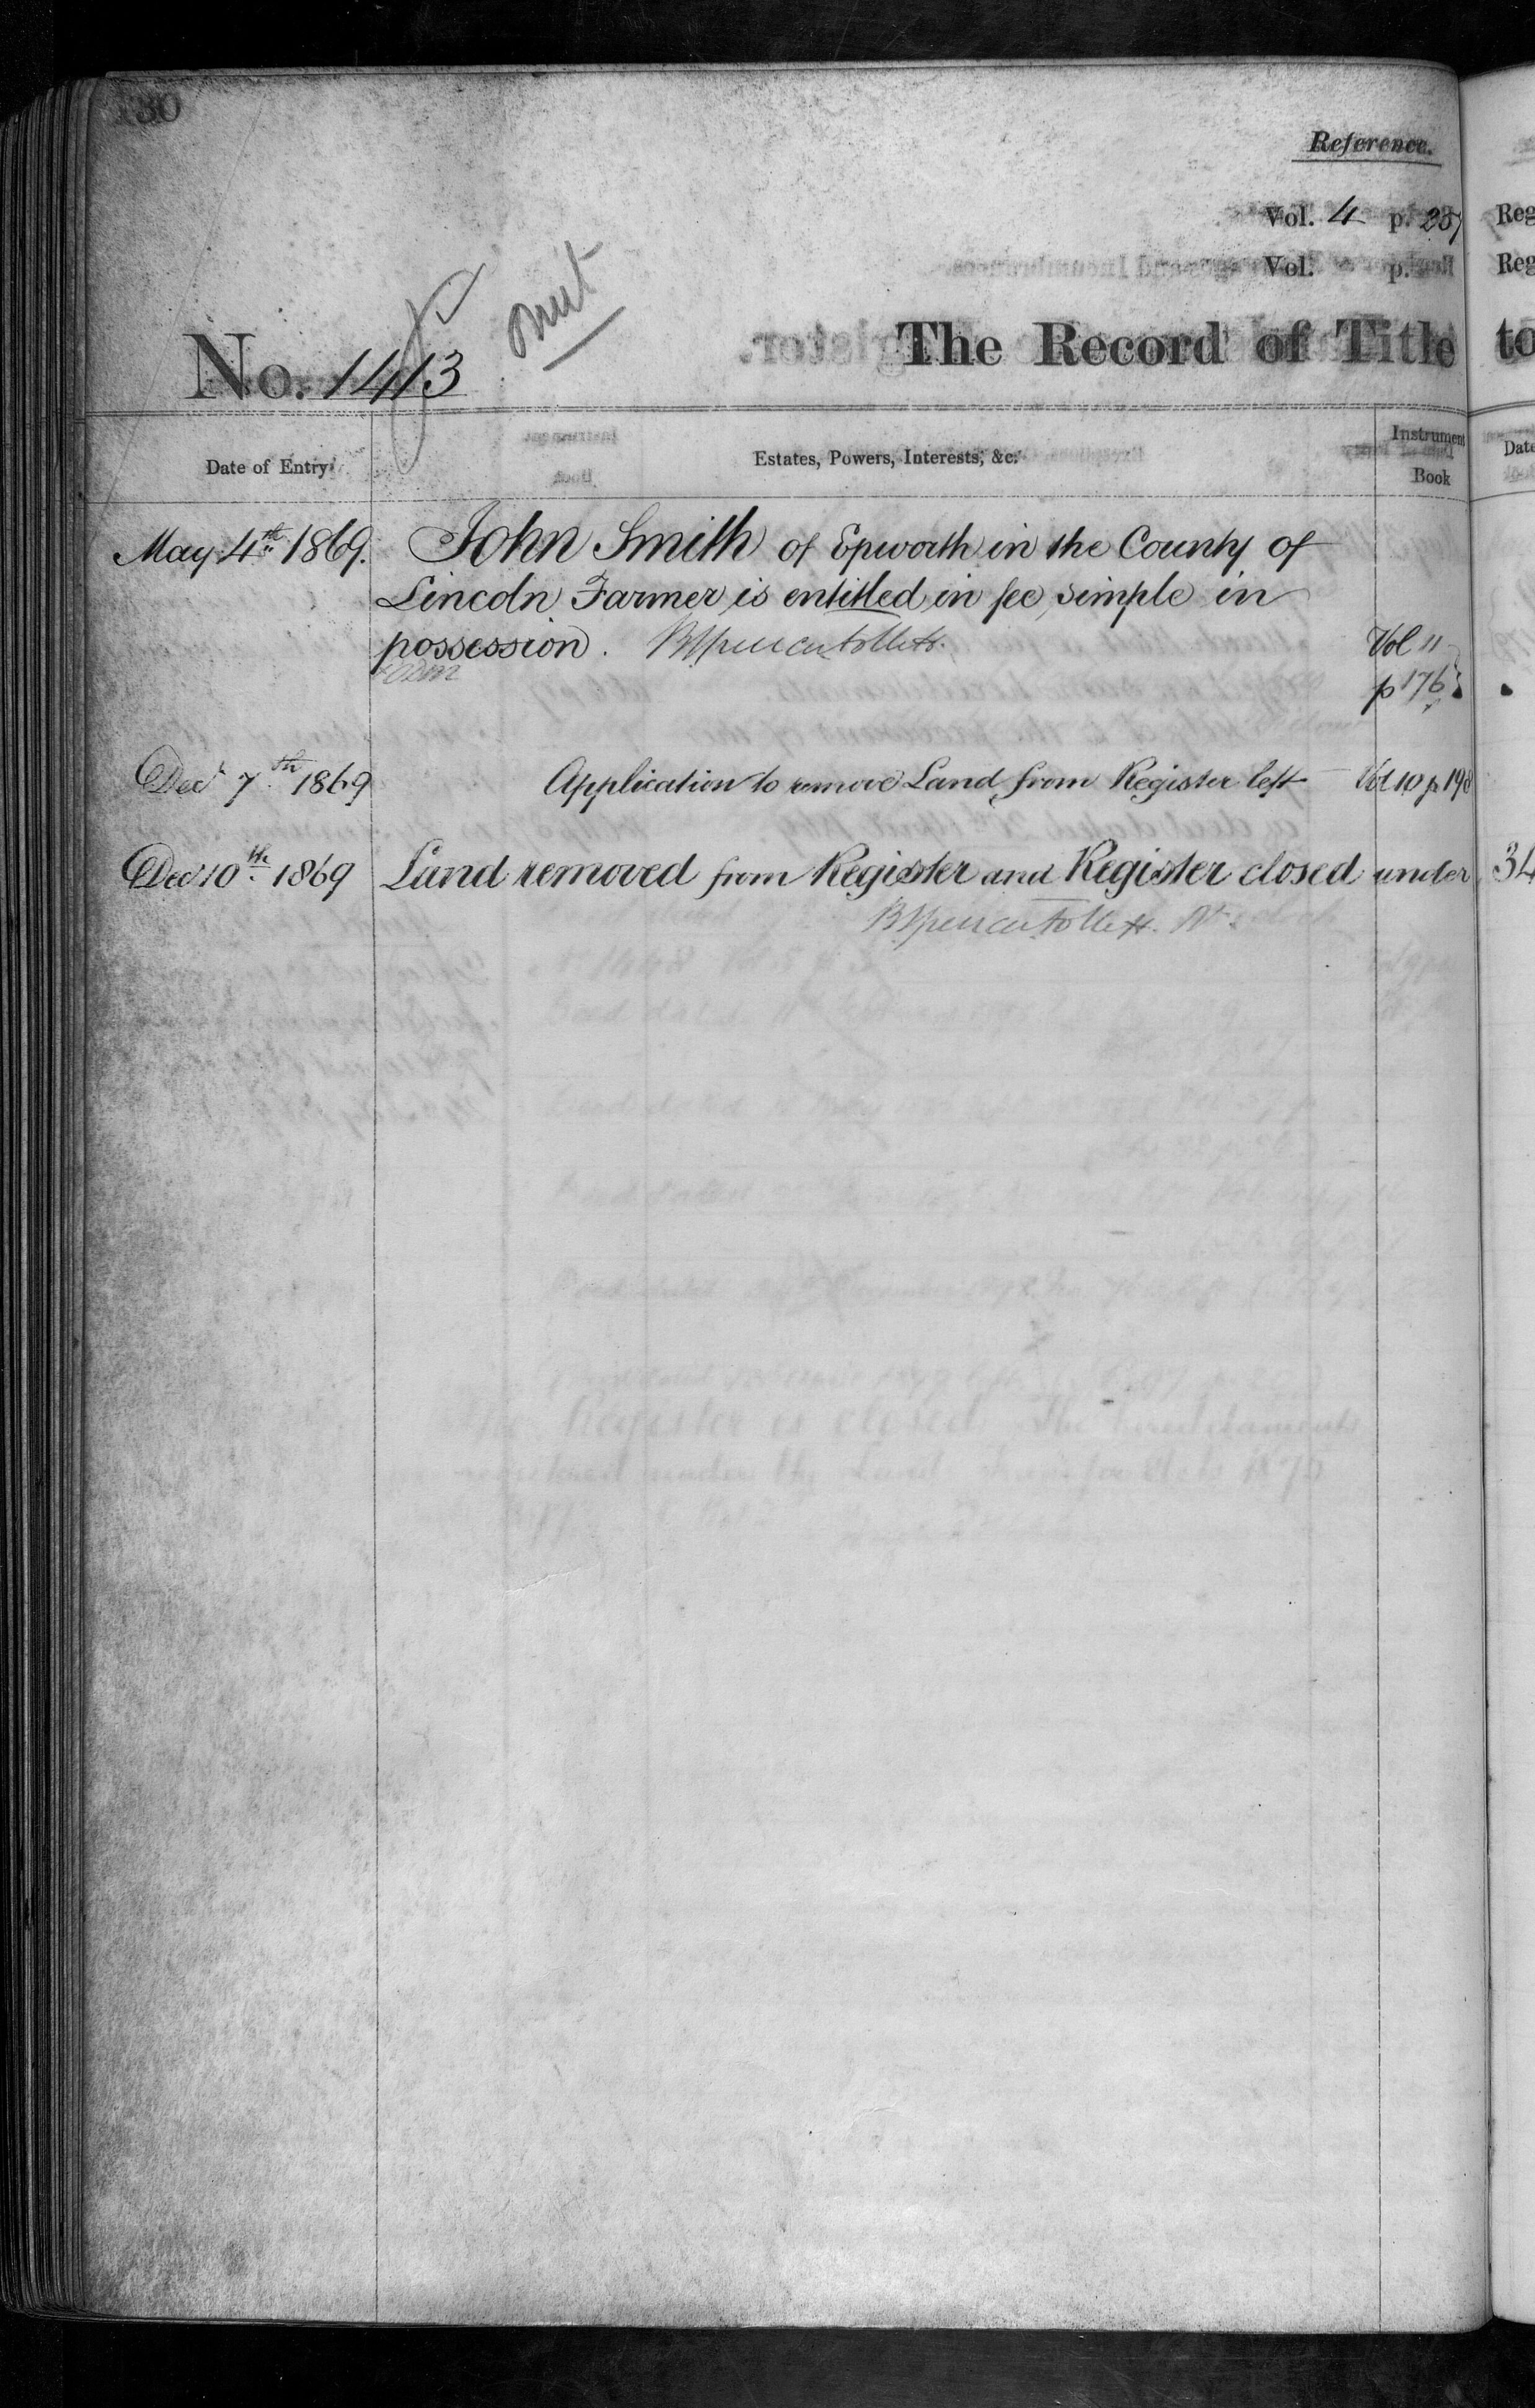 130
Reference.
Vol. 4 p. 237
Vol. p.
No. 1413
omit
The Record of Title to
Date of Entry
Estates, Powers, Interests, &c.
Instrument
Book
May 4th 1869. John Smith of Epworth in the County of
Lincoln Farmer is entitled in fee simple in
possession.
Vol 11
p 176
Decr 7th 1869 Application to remove Land from Register left Vol 10 p 198
Dec 10th 1869 Land removed from Register and Register closed under 34
Reg
Reg
Date